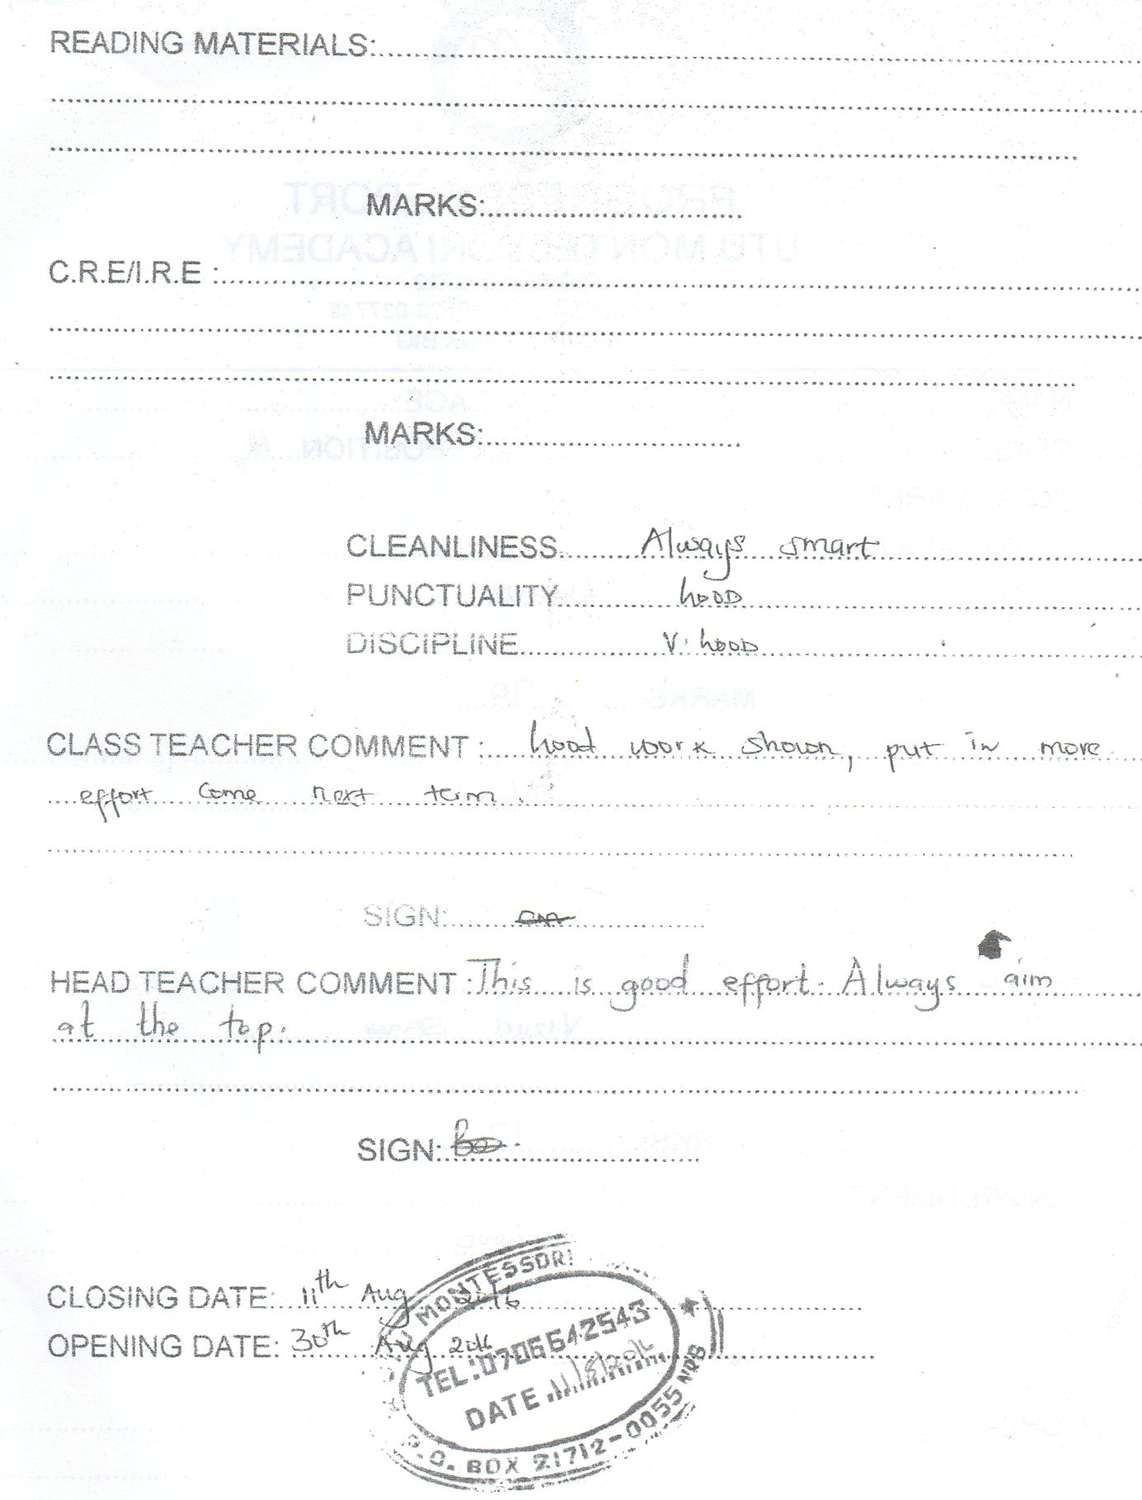 READING MATERIALS:
MARKS:
C.R.E/I.R.E :
MARKS:
CLEANLINESS Always smart
PUNCTUALITY Good
DISCIPLINE V. Good
CLASS TEACHER COMMENT : Good work shown, put in more
effort come next term.
SIGN:
HEAD TEACHER COMMENT : This is good effort. Always aim
at the top.
SIGN:
CLOSING DATE: 11th Aug 2016
OPENING DATE: 30th Aug 2016
MONTESSORI
TEL: 0706642543
DATE 11/8/2016
P.O. BOX 21712-0055 NRB